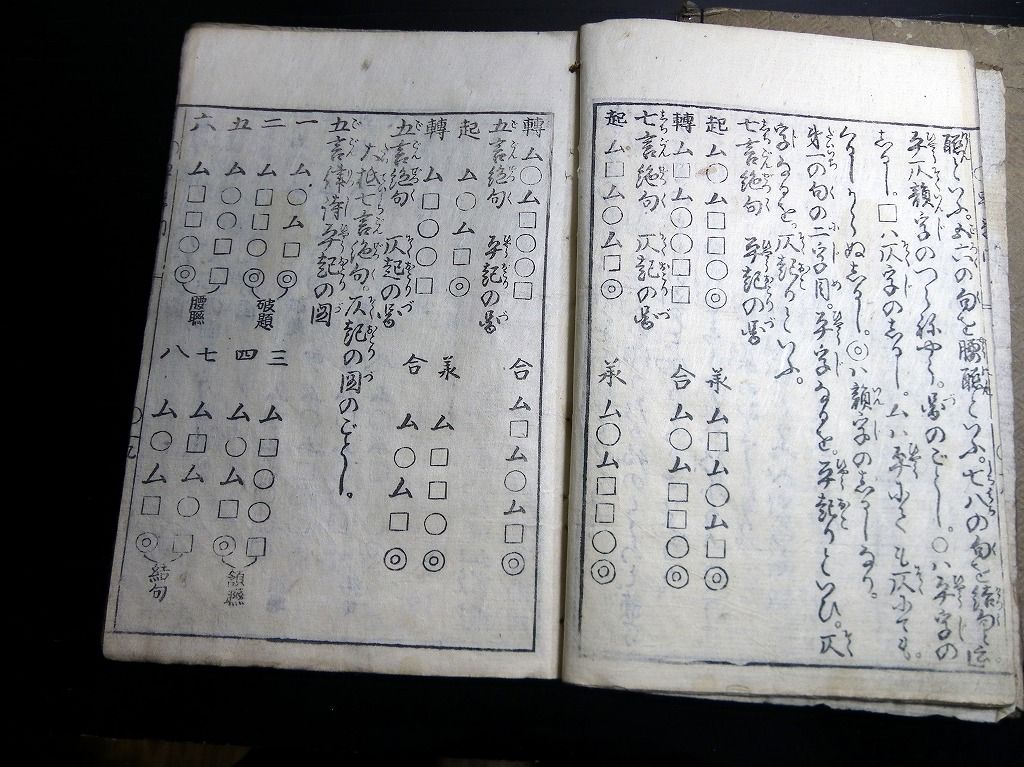 聯といふ。五六の句を腰聯といふ。七八の句を結句と云
平仄韻字のつらねやう。圖のごとし。○ハ平字の
しるし。□ハ仄字のしるし。ムハ平にても仄にても。
くるしからぬしるし。◎ハ韻字のしるしなり。
第一の句の二字目。平字なるを。平起りといひ。仄
字なるを。仄起りといふ。
七言絶句 平起の圖
起 ム○ム□□○◎ 承 ム□ム○ム□◎
轉 ム□ム○○□□ 合 ム○ム□□○◎
七言絶句 仄起の圖
起 ム□ム○ム□◎ 承 ム○ム□□○◎
轉 ム○ム□○○□ 合 ム□ム○ム□◎
五言絶句 平起の圖
起 ム○ム□◎ 承 ム□□○◎
轉 ム□○○□ 合 ム○ム□◎
五言絶句 仄起の圖
大抵七言絶句。仄起の圖のごとし。
五言律詩平起の圖
一 ム○ム□◎
二 ム□□○◎
破題
三 ム□○○□
四 ム○ム□◎
頷聯
五 ム○○□□
六 ム□□○◎
腰聯
七 ム□ム○□
八 ム○ム□◎
結句